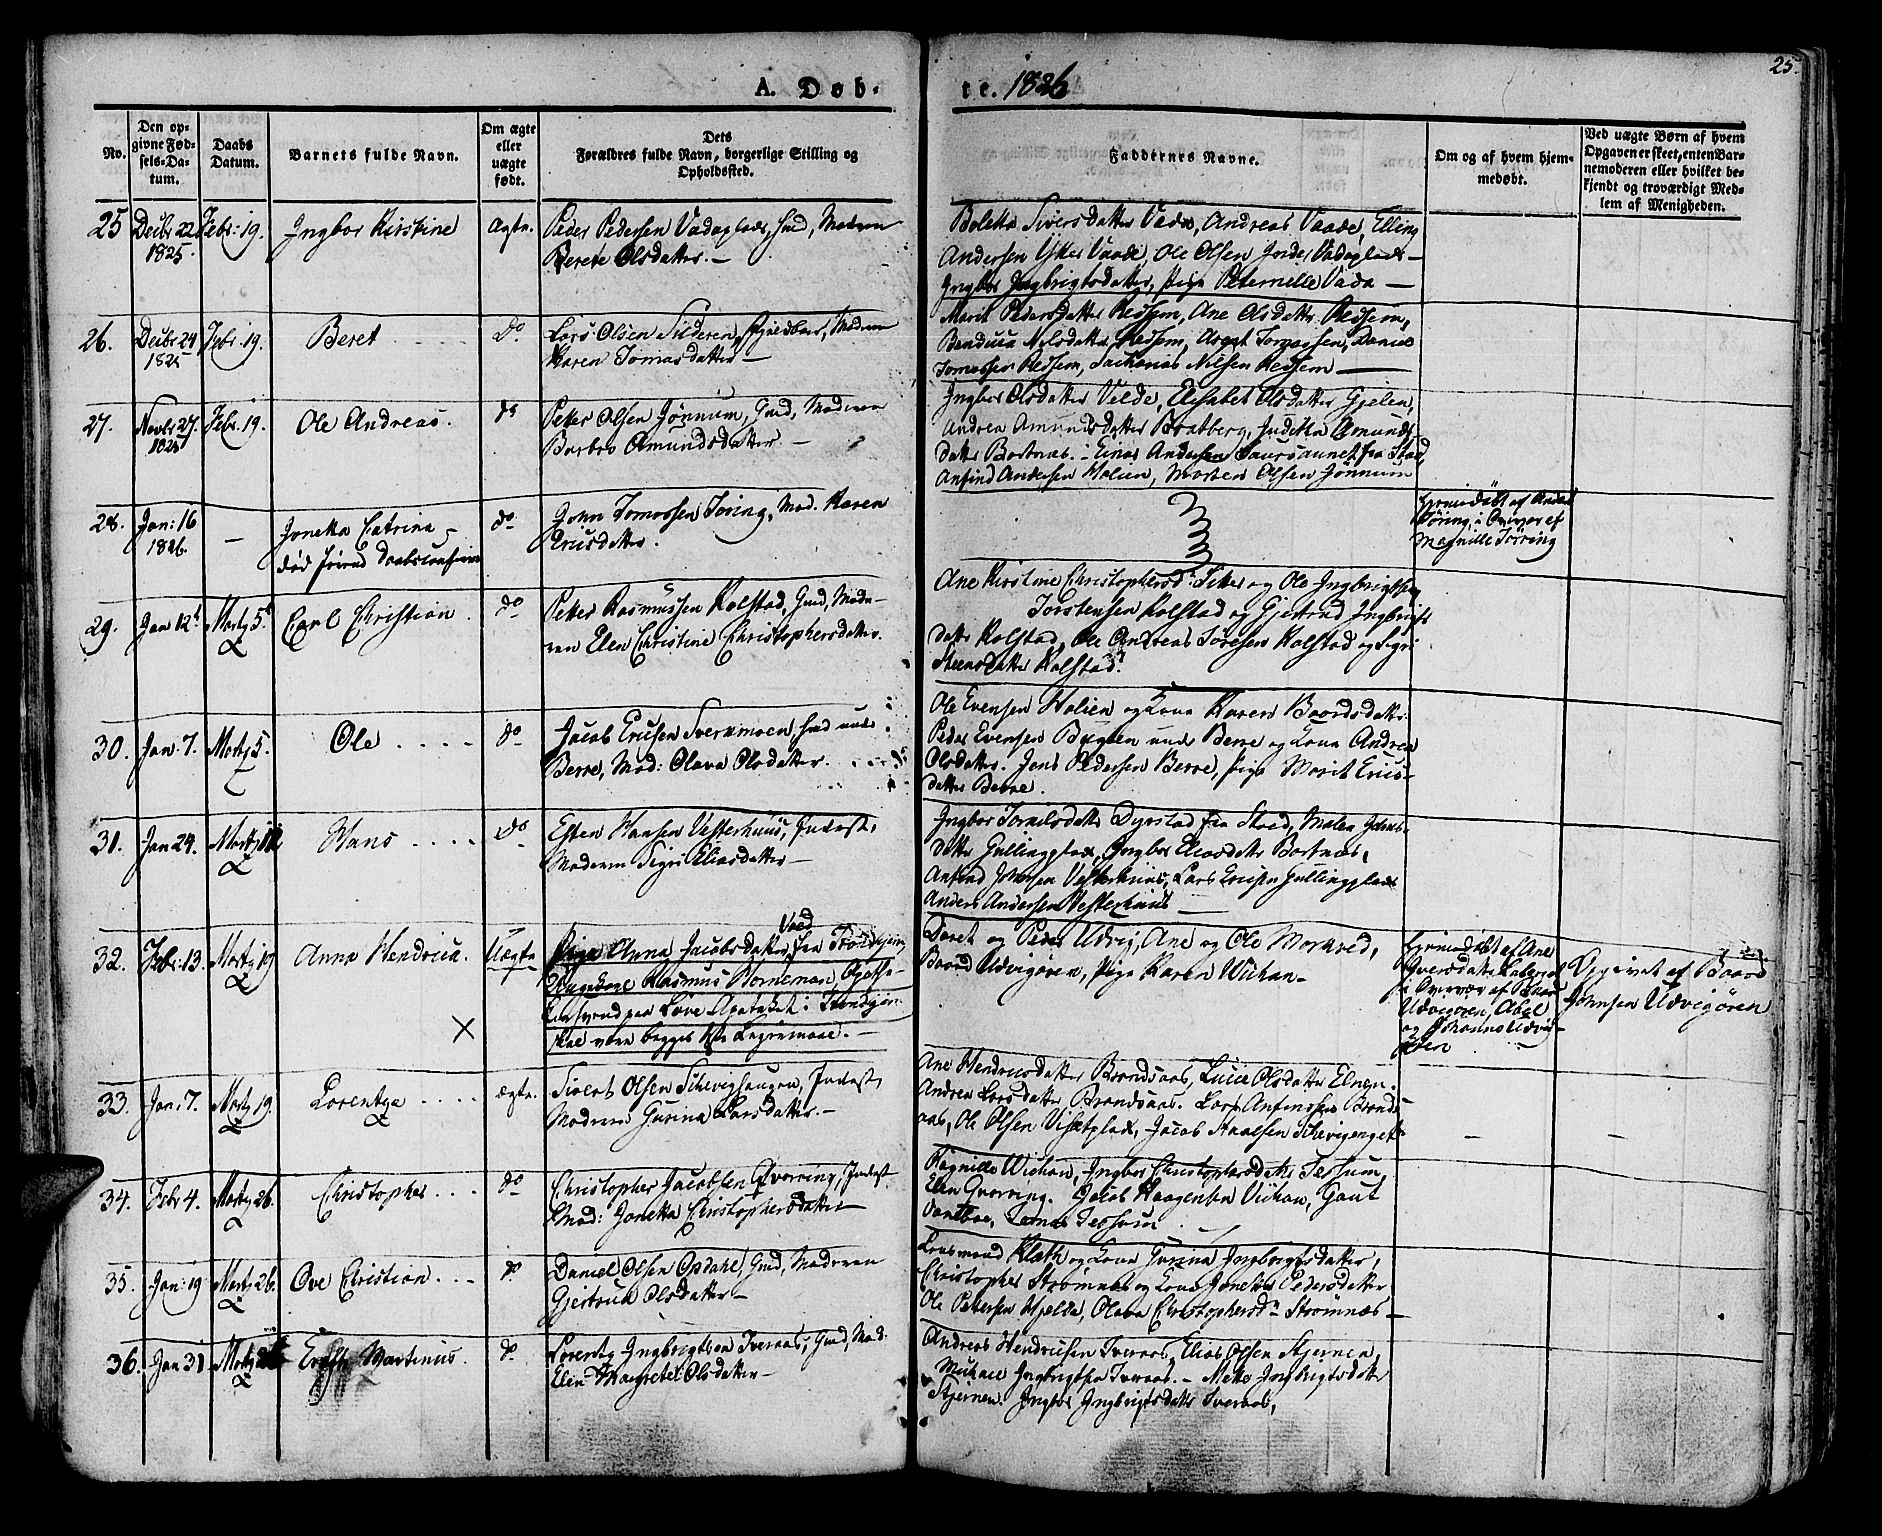 A. Døb-
te. 1826
25.
No.
Den op-
givne Fød-
sels-Da-
tum.
Daabs
Datum.
Barnets fulde Navn.
Om ægte
eller
uægte
født.
Dets
Forældres fulde Navn, borgerlige Stilling og
Opholdssted.
Faddernes Navne.
Om og af hvem hjem-
medøbt.
Ved uægte Børn af hvem
Opgaven er skeet, enten Bar-
nemoderen eller hvilket be-
kjendt og troværdigt Med-
lem af Menigheden.
25 Decbr 22 Febr: 19. Ingbor Kirstine Ægte. Peder Pedersen Vadaplads, Hmd, Moderen
1825. Berete Olsdatter. —
Andreas Vaade, Elling
Andersen Vaade, Ole Olsen
Ingbor Ingbrigtsdatter, Pige Peternelle Vada —
26. Decbr 24 Febr. 19. Beret do Lars Olsen Moderen
1825 Karen Tomasdatter —
Marit Pedersdatter Ressem, Ane Olsdatter Ressem,
Nilsdatter Ressem, Tomassen, Daniel
Tomassen Ressem, Zacharias Nilsen Ressem —
27. Novbr 27. Febr. 19. Ole Andreas. do Petter Olsen Jønnum, Gmd, Moderen
1825 Barbro Amundsdatter. —
Ingbor Olsdatter Velde, Elisabet Olsdatter Gjelen,
Andrea Amundsdatter Bratberg, Amunds-
datter Bortnæs. — Einar Andersen fra Stod,
Anfind Andersen Holien, Morten Olsen Jønnum
28. Jan: 16 — Jonetta Catrina do John Tomassen Tøring, Mod. Karen
1826. død førend Ericsdatter.
Hjemmedøbt af
Tøring, i Overvær af
Magnille Tøring
29. Jan 12 Marty 5 Carl Christian. do Petter Rasmussen Rolstad, Gmd, Mode-
ren Elen Christine Christophersdatter.
Ane Kirstine Christophersd: og Ole Ingbrigtsen
Torstensen Rolstad og Gjertrud Ingbrigts
datter Rolstad, Ole Andreas Rolstad og Sigri
Steensdatter Rolstad.
30. Jan: 7. Marty 5. Ole do Jacob Ericsen Sversmoen, Hmd unde
Berre, Mod: Olava Olsdatter.
Ole Evensen Holien og Kona Karen Baardsdatter.
Peder Evensen Bugten unde Berre og Kona Andrea
Olsdatter. Jens Pedersen Berre, Pige Marit Erics-
datter Berre.
31. Jan 24. Marty Hans do Esten Hansen Vesterhuus, Inderst,
Moderen Sigri Eliasdatter —
Ingbor Dyrstad fra Stod, Malen
datter Gullingplads, Ingbor Eliasdatter Bortnæs,
Anfind Johnsen Vesterhuus, Lars Ericsen Gullingplads
Anders Andersen Vesterhuus —
32. Febr: 13. Marty 19 Anna Hendrica. Uægte Pige Anna Jacobsdatter Vaed fra Trondhjem,
Ungekarl Rasmus Horneman,
paa Løve Apotheket i Trondhjem
skal være begges 1ste Leiermaal. —
Beret og Peder Udvig, Ane og Ole Morkved,
Baard Udvigøren, Pige Karen Wichan —
Hjemmedøbt af Ane
Iversdatter
i Overvær af Baard
Udvigøren, Abel
og Johannes Udvig
øren
Opgivet af Baard
Johnsen Udvigøren
33. Jan: 7. Marty 19. Lorentza ægte. Sivert Olsen Skevighaugen, Inderst,
Moderen Gurina Larsdatter. —
Ane Hendricsdatter Brandsaas, Lucie Olsdatter Elnen.
Andrea Larsdatter Brandsaas. Lars Brands-
aas, Ole Olsen Jacob
34. Febr 4. Marty 26. Christopher do Christopher Jacobsen Qverring, Inderst
Mod: Jonetta Christophersdatter
Ragnille Wichan, Ingbor Christophersdatter Tessum,
Elen Qverring. Jacob Haagensen Vichan, Gaut
Tessum.
35. Jan: 19 Marty 26. Ove Christian do Daniel Olsen Opdahl, Gmd, Moderen
Gjertrud Olsdatter —
Klath og Kona Gurina Ingborgtsdatter,
Christopher Strømnæs og Kona Jonetta Pedersdatter
Ole Petersen Hjelde, Olava Christophersd: Strømnæs —
36. Jan 31 Marty 26 Martinus. do Lorentz Ingbrigtsen Tveraas, Gmd, Mod.
Elen Margrete Olsdatter —
Andreas Hendricsen Tveraas, Elias Olsen Stjernen,
Michael Ingbrigtsen Tveraas. — Mette Ingbrigtsdatter
Stjernen. Ingbor Ingbrigtsdatter Tveraas,